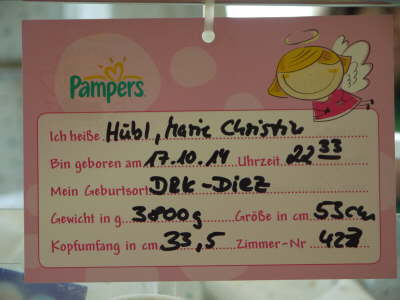 Pampers
Ich heiße Hübl, Marie Christin
Bin geboren am 17.10.14 Uhrzeit 22 33
Mein Geburtsort DRK-Diez
Gewicht in g 3800g Größe in cm 53cm
Kopfumfang in cm 33,5 Zimmer-Nr 427